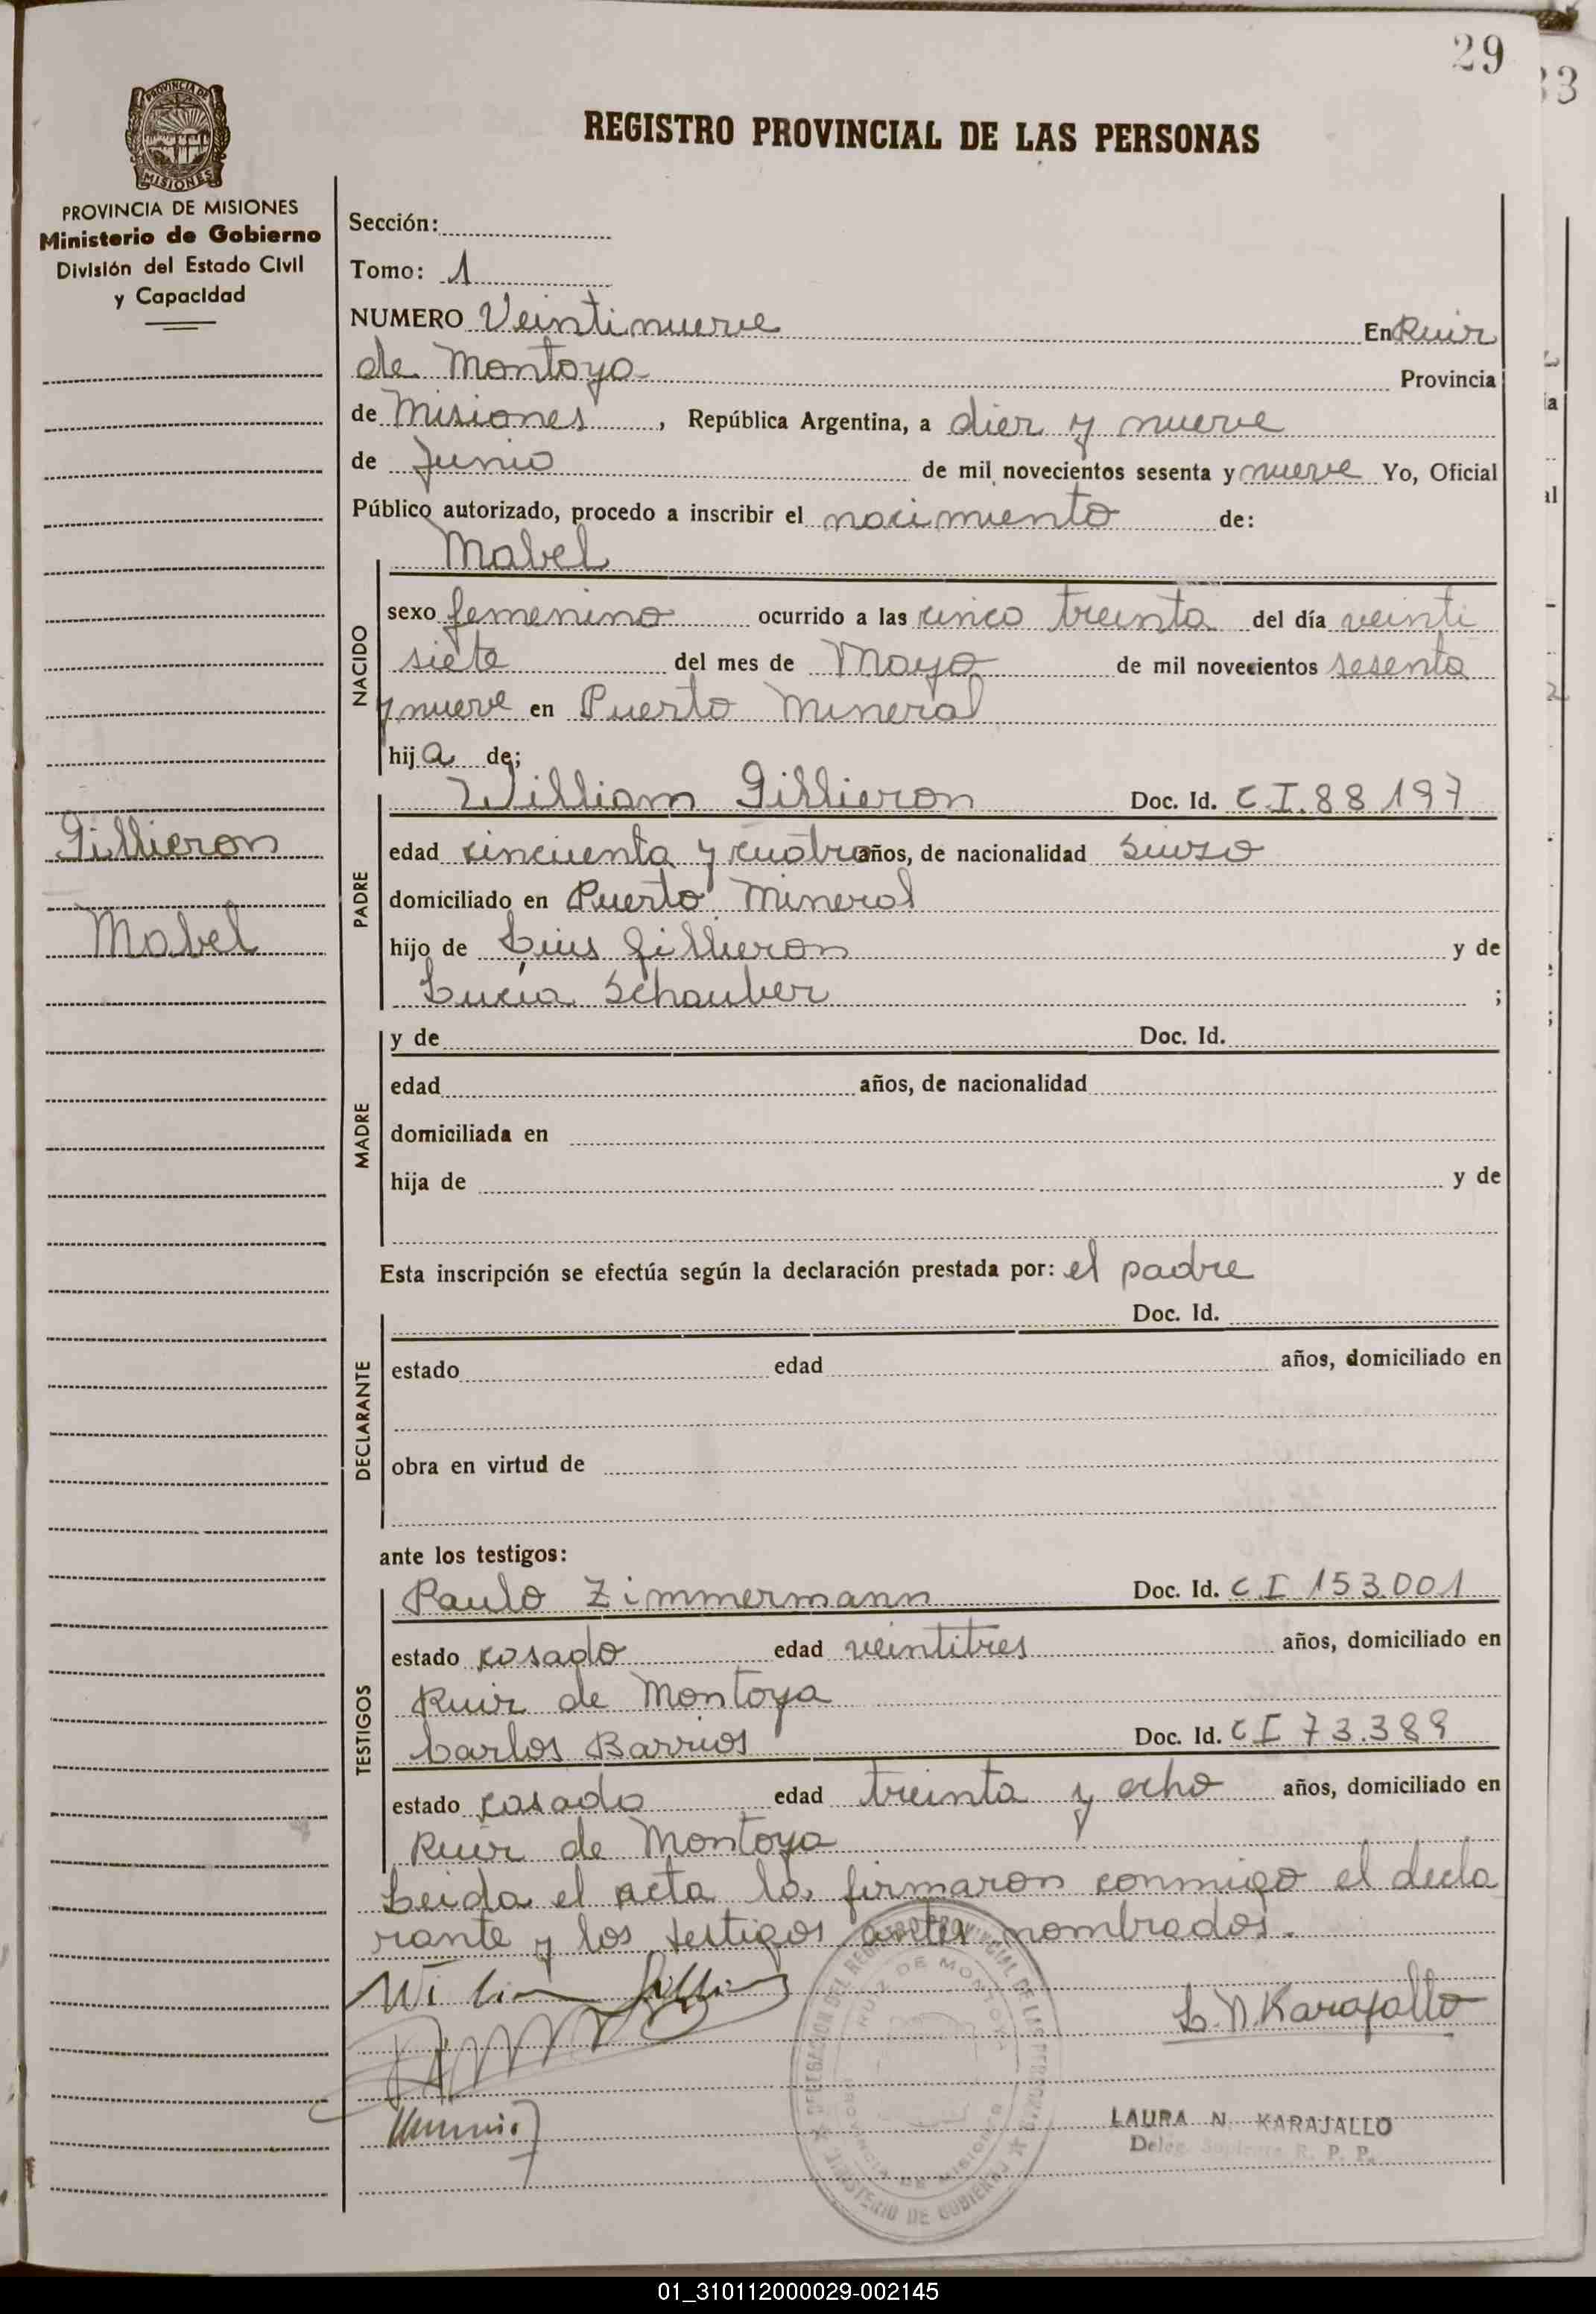 29
33
PROVINCIA DE
MISIONES
REGISTRO PROVINCIAL DE LAS PERSONAS
PROVINCIA DE MISIONES
Ministerio de Gobierno
División del Estado Civil
y Capacidad
Gillieron
Mabel
Sección:
Tomo: 1
NUMERO Veintinueve En Ruiz
de Montoya Provincia
de Misiones, República Argentina, a diez y nueve
de Junio de mil novecientos sesenta y nueve Yo, Oficial
Público autorizado, procedo a inscribir el nacimiento de:
Mabel
NACIDO
sexo femenino ocurrido a las cinco treinta del día veinti
siete del mes de Mayo de mil novecientos sesenta
y nueve en Puerto Mineral
hija de;
PADRE
William Gillieron Doc. Id. C.I. 88.197
edad cincuenta y cuatro años, de nacionalidad suizo
domiciliado en Puerto Mineral
hijo de Luis Gillieron y de
Lucía Schauber ;
MADRE
y de Doc. Id.
edad años, de nacionalidad
domiciliada en
hija de y de
Esta inscripción se efectúa según la declaración prestada por: el padre
DECLARANTE
Doc. Id.
estado edad años, domiciliado en
obra en virtud de
ante los testigos:
TESTIGOS
Paulo Zimmermann Doc. Id. C I 153.001
estado casado edad veintitres años, domiciliado en
Ruiz de Montoya
Carlos Barrios Doc. Id. C I 73.389
estado casado edad treinta y ocho años, domiciliado en
Ruiz de Montoya
Leida el acta la firmaron conmigo el decla
rante y los testigos antes nombrados.
L. N. Karajallo
DELEGACION DEL REGISTRO PROVINCIAL DE LAS PERSONAS
RUIZ DE MONTOYA
PROVINCIA DE MISIONES
MINISTERIO DE GOBIERNO
LAURA N. KARAJALLO
Deleg. Suplente R. P. P.
01_310112000029-002145